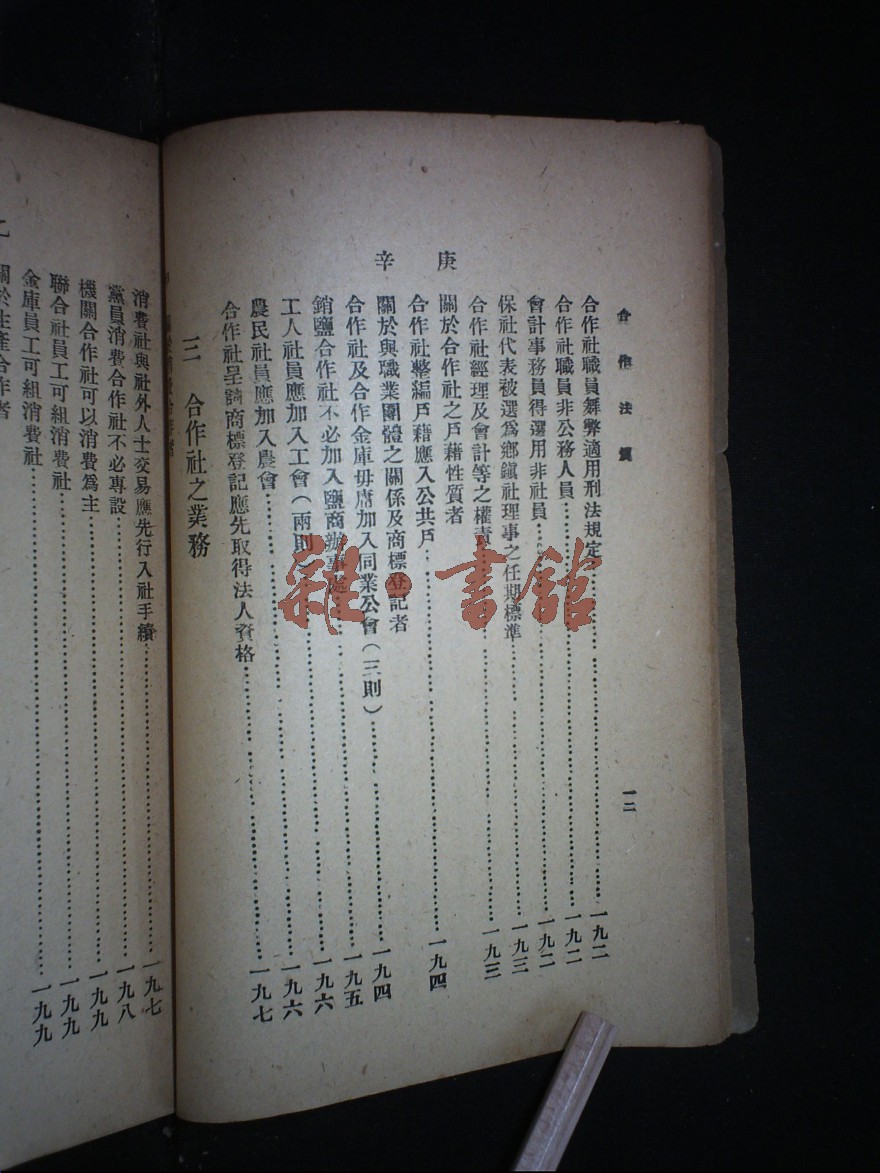 合作法
一二
合作社職員舞弊適用刑法規定……一九二
合作社職員非公務人員……一九二
會計事務員得選用非社員……一九二
保社代表被選爲鄉鎭社理事之任期標準……一九三
合作社經理及會計等之權責……一九三
庚 關於合作社之戶藉性質者
合作社整編戶藉應入公共戶……一九四
辛 關於與職業團體之關係及商標登記者
合作社及合作金庫毋庸加入同業公會(三則)……一九四
銷鹽合作社不必加入鹽商辦事處……一九五
工人社員應加入工會(兩則)……一九六
農民社員應加入農會……一九六
合作社呈請商標登記應先取得法人資格……一九七
三 合作社之業務
消費社與社外人士交易應先行入社手續……一九七
黨員消費合作社不必專設……一九八
機關合作社可以消費爲主……一九九
聯合社員工可組消費社……一九九
金庫員工可組消費社……一九九
乙 關於生產合作者
雜·書館